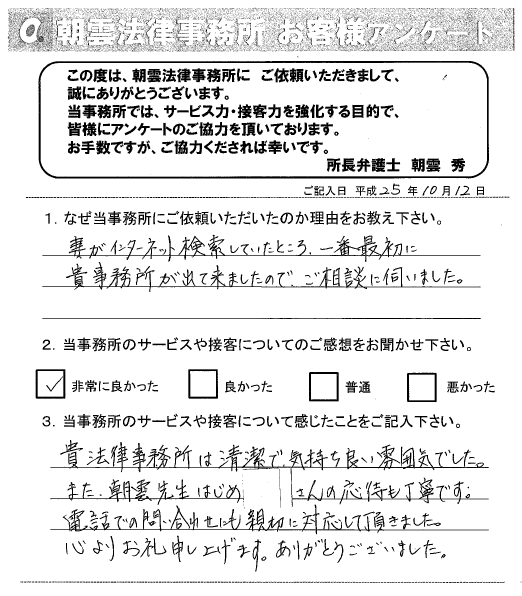 Q. 朝雲法律事務所 お客様アンケート
この度は、朝雲法律事務所に ご依頼いただきまして、
誠にありがとうございます。
当事務所では、サービス力・接客力を強化する目的で、
皆様にアンケートのご協力を頂いております。
お手数ですが、ご協力くだされば幸いです。
所長弁護士 朝雲 秀
ご記入日 平成25年10月12日
1. なぜ当事務所にご依頼いただいたのか理由をお教え下さい。
妻がインターネット検索していたところ、一番最初に
貴事務所が出て来ましたので、ご相談に伺いました。
2. 当事務所のサービスや接客についてのご感想をお聞かせ下さい。
✓ 非常に良かった 良かった 普通 悪かった
3. 当事務所のサービスや接客について感じたことをご記入下さい。
貴法律事務所は清潔で、気持ち良い雰囲気でした。
また、朝雲先生はじめ さんの応待も丁寧です。
電話での問い合わせにも親切に対応して頂きました。
心よりお礼申し上げます。ありがとうございました。